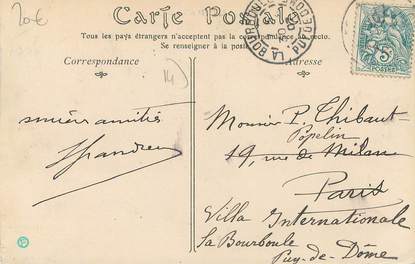 20€
Carte Postale
Tous les pays étrangers n'acceptent pas la correspondance au recto.
Se renseigner à la poste.
Correspondance
Adresse
LA BOURBOULE
PUY-DE-DOME
POSTES
5
sincères amitiés
Monsieur P. Thibaut-
Popelin
19, rue de Milan
Paris
Villa Internationale
La Bourboule
Puy-de-Dôme